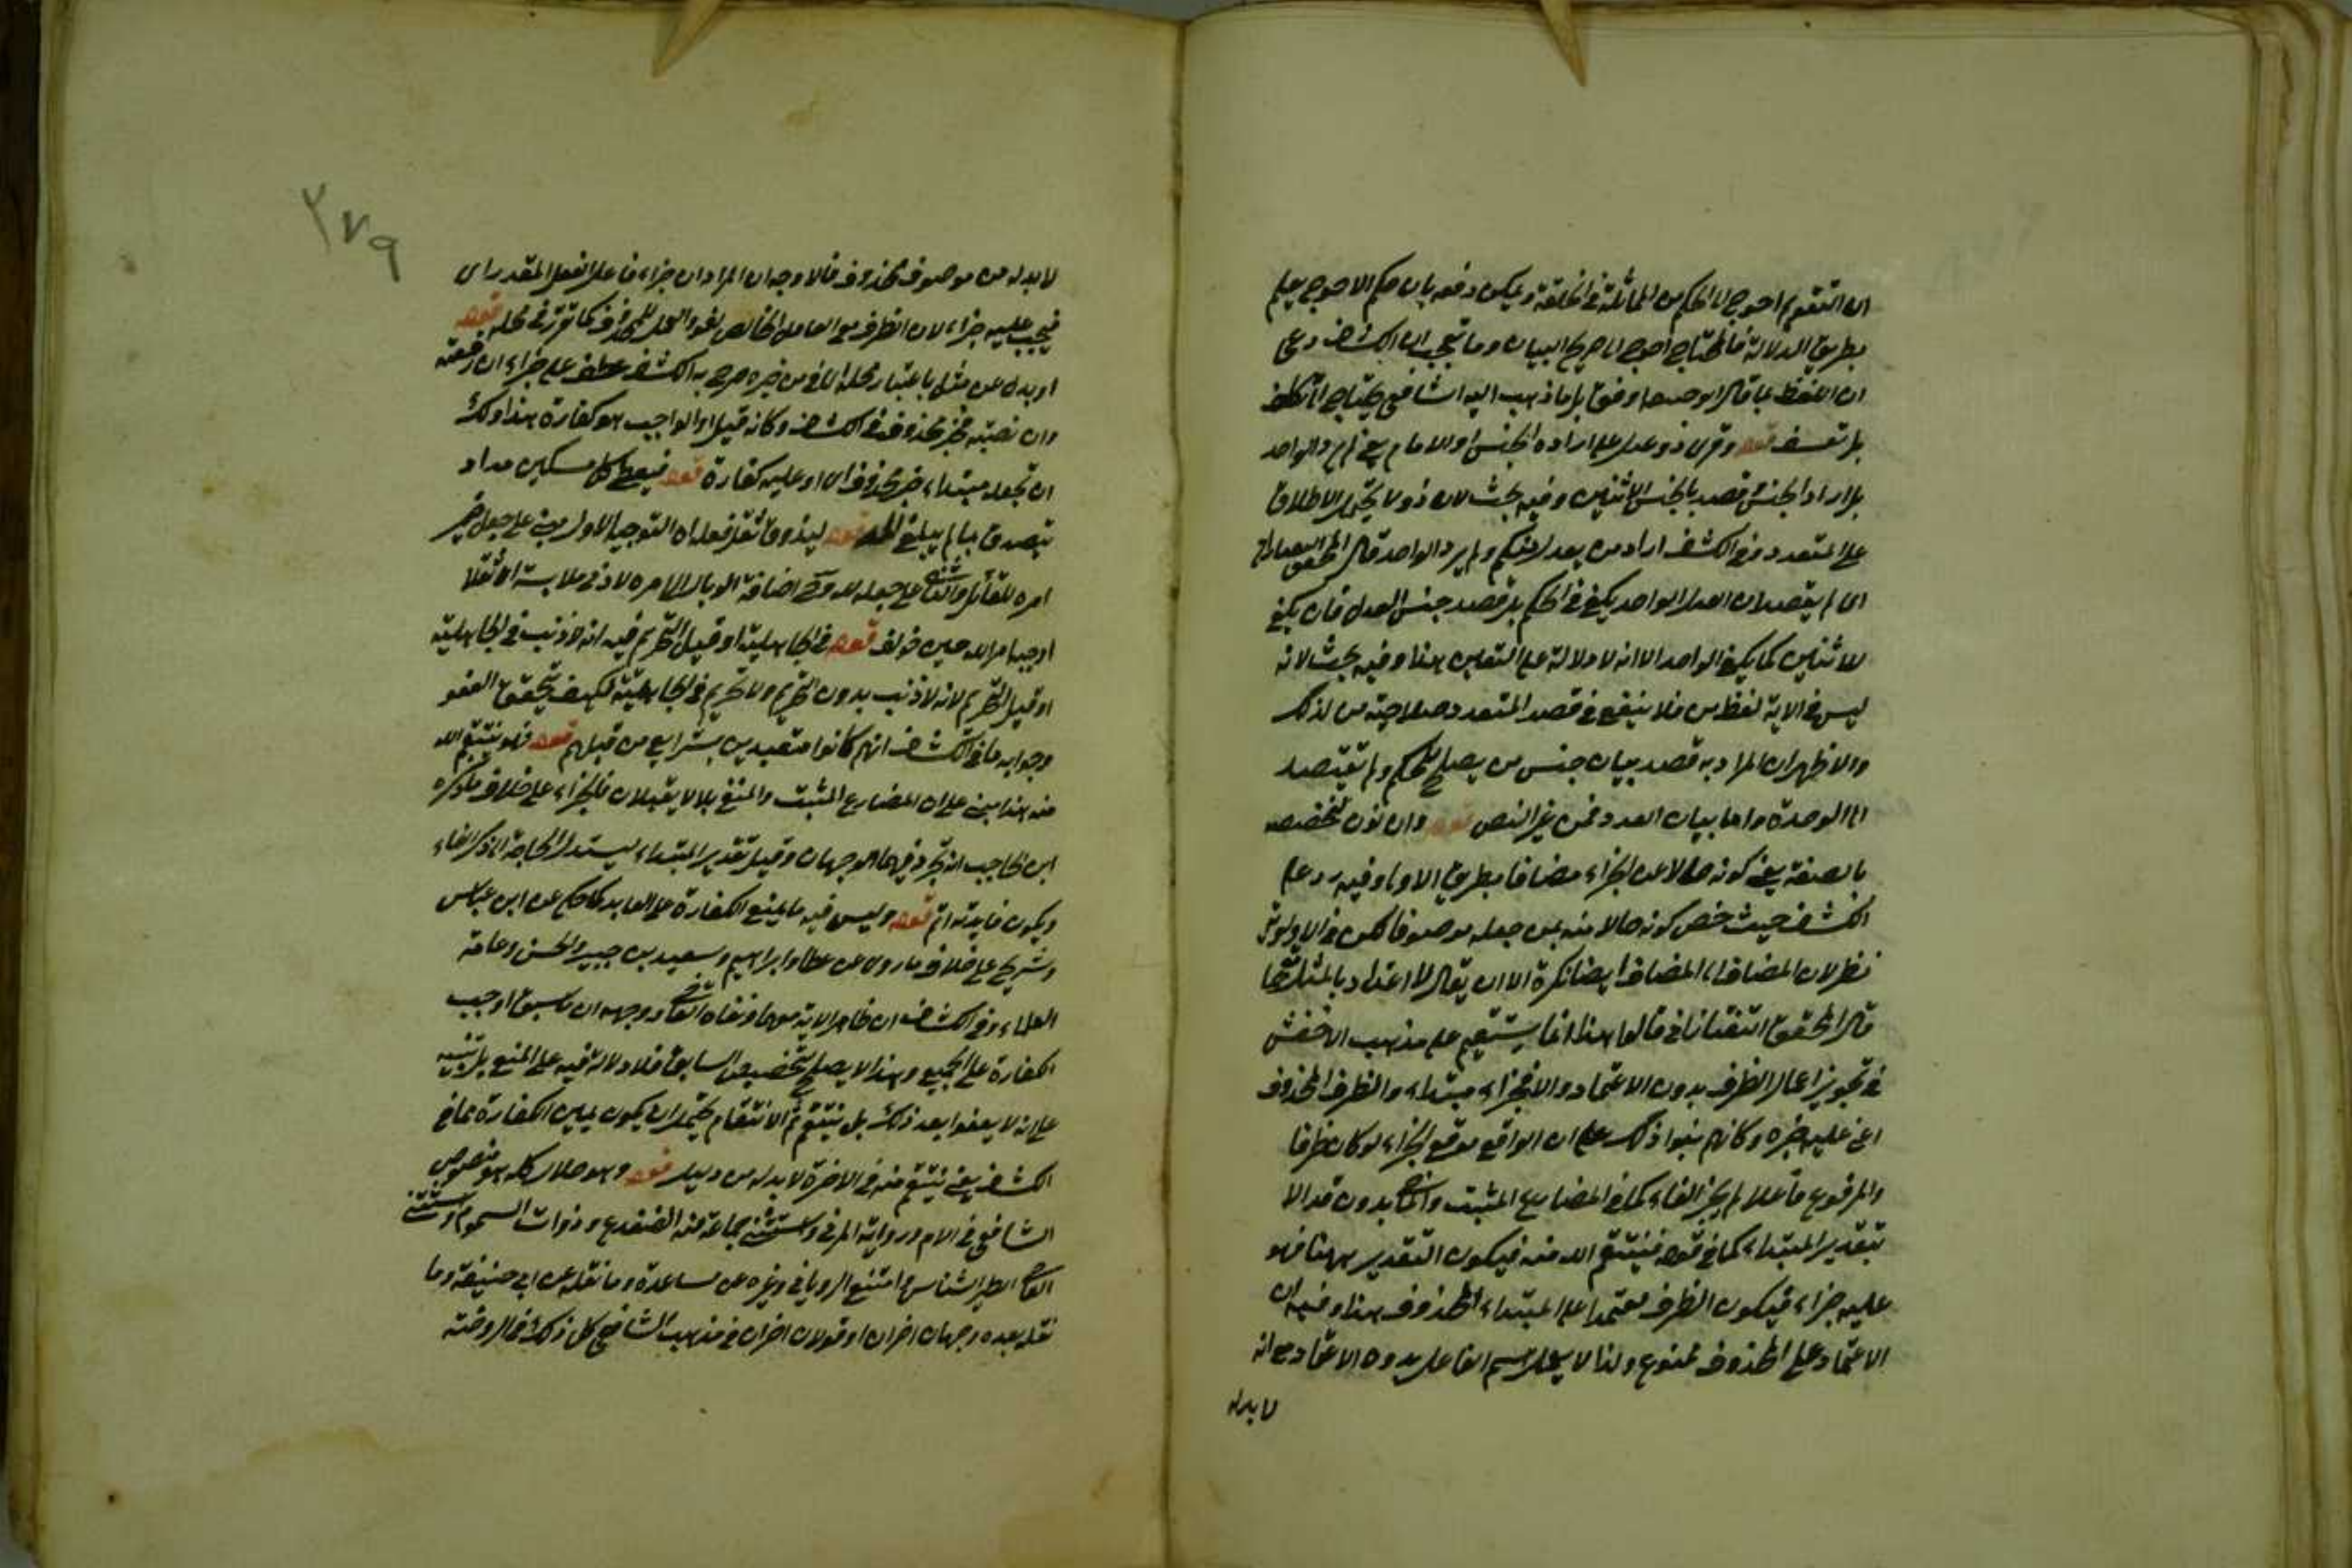 ان التقويم احوج الى الحكم من المماثلة في الخلقة ويمكن دفعه بان حكم الاحوج يعلم
بطريق الدلالة فالمحتاج احوج الى صريح البيان وما تعجب ان الكشاف دعى
ان اللفظ بما قال ابو حنيفة اوفق بل ما ذهب اليه الشافعي يحتاج الى تكلف
بل تعسف قوله وقرئ ذو عدل على ارادة الجنس او الامام يعني لم يرد الواحد
بل اراد الجنس قصد بالجنس الاثنين وفيه بحث لان ذو لا يحتمل الاطلاق
على المتعدد وفي الكشاف اراد من يعدل منكم ولم يرد الواحد قال المحقق
اى لم يقصد ان العدل الواحد يكفي في الحكم بل قصد جنس العدل فان يكفي
للاثنين كما يكفي الواحد الا انه لا دلالة على التعيين هذا وفيه بحث لانه
ليس في الاية لفظ من فلا ينفع في قصد المتعدد صلاحيته من لذلك
والاظهر ان المراد به قصد بيان جنس من يصلح للحكم ولم يقصد
الى الوحدة واما بيان العدد فمن غير النص قوله وان نون لتخصصه
بالصفة يعني كونه حالا عن الجزاء مضافا بطريق الاولى وفيه رد على
الكشاف حيث خص كونه حالا منه بمن جعله موصوفا لكن في الاولوية
نظر لان المضاف الى المضاف ايضا نكرة الا ان يقال لا اعتداد بالمثل
قال المحقق التفتازاني قالوا هذا انما يستقيم على مذهب الاخفش
في تجويز اعمال الظرف بدون الاعتماد والا فجزاء مبتداء والظرف المحذوف
اعني عليه خبره وكانهم بنوا ذلك على ان الواقع موقع الجزاء لو كان ظرفا
والمرفوع فاعلا لم يجز الفاء كما في المضارع المثبت والماضي بدون قد الا
بتقدير المبتداء كما في قوله فينتقم الله منه فيكون التقدير ههنا فهو
عليه جزاء فيكون الظرف معتمدا على المبتداء المحذوف هذا وفيه ان
الاعتماد على المحذوف ممنوع ولذا لا يعمل اسم الفاعل بدون الاعتماد مع انه
لا بد له
٢٧٩
لا بد له من موصوف محذوف فالاوجه ان المراد ان جزاء فاعل الفعل المقدر اى
فيجب عليه جزاء لان الظرف مع العامل الخاص لغو والعمل للمحذوف كما تقرر في محله قوله
او بدل عن مثل باعتبار محله الى من خبره صرح به الكشاف عطف على جزاء ان رفعته
وان نصبته فخبر محذوف في الكشاف وكانه قيل او الواجب هو كفارة هذا ولك
ان تجعله مبتداء خبره محذوف اى او عليه كفارة قوله فيعطي كل مسكين مدا و
يتصدق بما لم يبلغ المد قوله ليذوق ثقل فعله اه التوجيه الاول مبني على جعل ضمير
امره للقاتل والثاني على جعله لله وفي اضافة الوبال الى امره لادنى ملابسة
اوجبه امر الله حين خولف قوله في الجاهلية او قبل التحريم فيه انه لا ذنب في الجاهلية
او قبل التحريم لانه لا ذنب بدون التحريم ولا تحريم في الجاهلية فكيف يتحقق العفو
وجوابه ما في الكشاف انهم كانوا متعبدين بشرايع من قبلهم قوله فهو ينتقم الله
منه هذا مبني على ان المضارع المثبت والمنفي بلا لا يقبلان فاء الجزاء على خلاف ما ذكره
ابن الحاجب انه يجوز فيهما الوجهان وقيل تقدير المبتداء ليستدل الحاجة الى ذكر الفاء
ويكون فايدته اتم قوله وليس فيه ما يمنع الكفارة على العايد كما حكي عن ابن عباس
وشريح على خلاف ما روى عن عطا وابراهيم وسعيد بن جبير والحسن وعامة
العلماء وفي الكشاف ان ظاهر الاية معهما ونفاه القاضي ووجهه ان ما سبق اوجب
الكفارة على الجميع وهذا لا يصلح لتخصيص السابق فلا دلالة فيه على المنع بل تنبيه
على انه لا يعفو بعد ذلك بل ينتقم ثم الانتقام يحتمل ان يكون بمعين الكفارة فما في
الكشاف يعني ينتقم منه في الاخرة لا بد له من دليل قوله وهو حلال كله هو منصوص
الشافعي في الام ورواية المزني واستثنى جماعة منه الضفدع وذوات السموم واستثنى
القاضي الطبري النسناس وامتنع الروياني وغيره عن مساعدة وما نقله عن ابي حنيفة وما
نقله بعده وجهان اخران او قولان اخران في مذهب الشافعي كل ذلك في الروضة